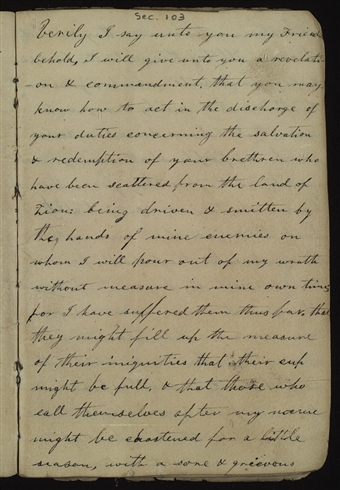 Sec. 103
Verily I say unto you my Friends
behold, I will give unto you a revelati
-on & commandment, that you may
know how to act in the discharge of
your duties concerning the salvation
& redemption of your brethren who
have been scattered from the land of
Zion: being driven & smitten by
the hands of mine enemies on
whom I will pour out of my wrath
without measure in mine own time
for I have suffered them thus far, that
they might fill up the measure
of their iniquities that their cup
might be full, & that those who
call themselves after my name
might be chastened for a little
season, with a sore & grievous